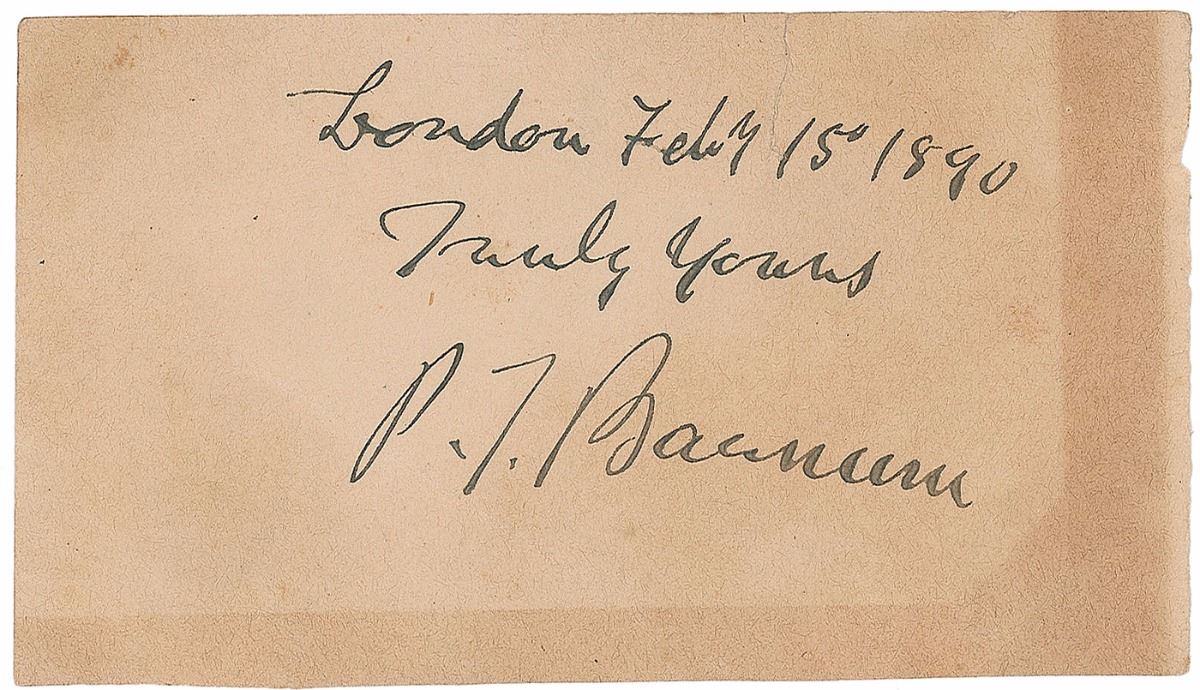 London Feb'y 15 1890
Truly Yours
P. T. Barnum